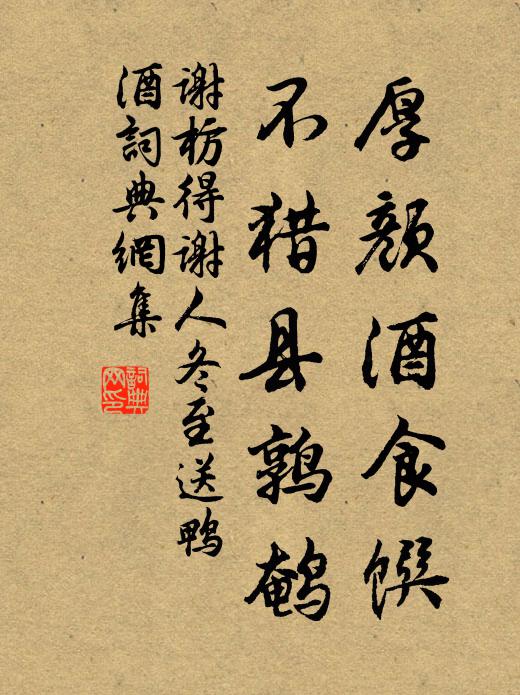 厚颜酒食馔
不猎县鹑鹌
谢枋得谢人冬至送鸭
酒詞典網集
詞典
网印